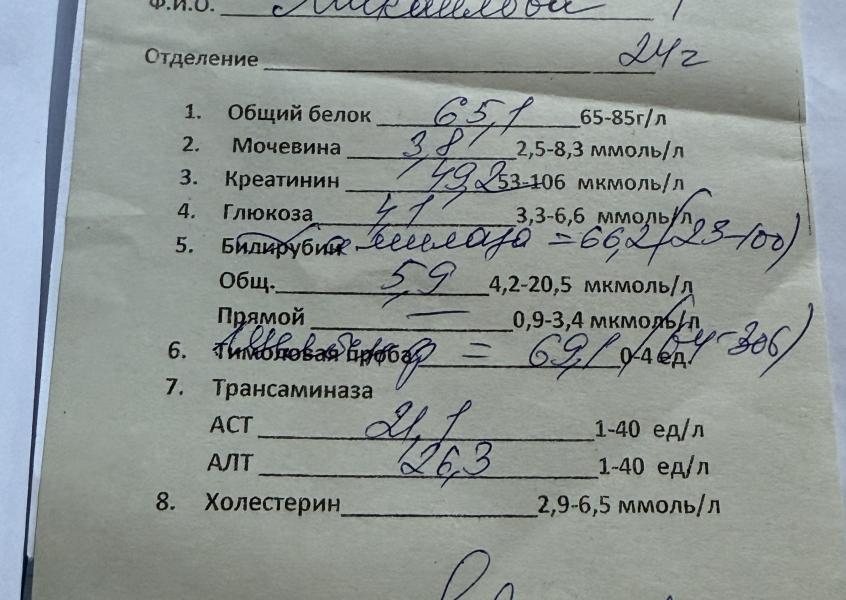 Ф.И.О.
Отделение 24 г
1. Общий белок 65,1 65-85г/л
2. Мочевина 3,8 2,5-8,3 ммоль/л
3. Креатинин 49,2 53-106 мкмоль/л
4. Глюкоза 4,1 3,3-6,6 ммоль/л
5. Билирубин амилаза = 66,2 (23-100)
Общ. 5,9 4,2-20,5 мкмоль/л
Прямой — 0,9-3,4 мкмоль/л
6. Тимоловая проба = 69,1 0-4 ед. (64-306)
7. Трансаминаза
АСТ 21,1 1-40 ед/л
АЛТ 26,3 1-40 ед/л
8. Холестерин 2,9-6,5 ммоль/л